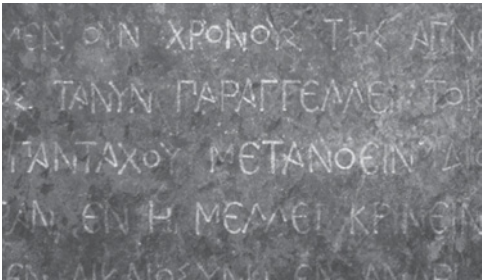 ΜΕΝ ΟΥΝ ΧΡΟΝΟΥΣ ΤΗΣ ΑΓΝΟ
ΟΣ ΤΑΝΥΝ ΠΑΡΑΓΓΕΛΛΕΙ ΤΟΙΣ
ΠΑΝΤΑΧΟΥ ΜΕΤΑΝΟΕΙΝ ΔΙΟ
ΡΑΝ ΕΝ Η ΜΕΛΛΕΙ ΚΡΙΝΕΙΝ
ΕΝ ΔΙΚΑΙΟΣΥΝΗ ΕΝ